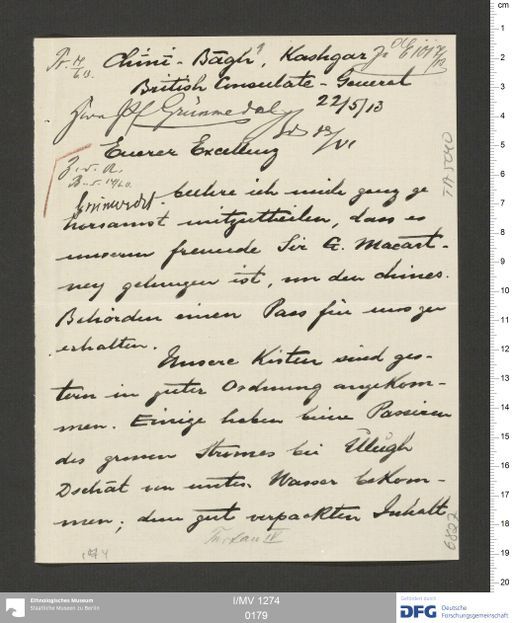 Chini-Bāgh, Kashgar
British Consulate-General
22/5/13
Herrn Prof. Grünwedel
Euerer Excellenz
Grünwedel
beehre ich mich ganz ge
horsamst mitzutheilen, dass es
unserem freunde Sir G. Macart-
ney gelungen ist, von den chines.
Behörden einen Pass für uns zu
erhalten.
Unsere Kisten sind ges-
tern in guter Ordnung angekom-
men. Einige haben beim Passiren
des grossen Stromes bei Üllügh
Dschāt von unten Wasser bekom-
men; dem gut verpackten Inhalt
Turfan IV
TA 5040
6807
Ethnologisches Museum
Staatliche Museen zu Berlin
I/MV 1274
0179
Gefördert durch
DFG
Deutsche
Forschungsgemeinschaft
cm
1
2
3
4
5
6
7
8
9
10
11
12
13
14
15
16
17
18
19
20